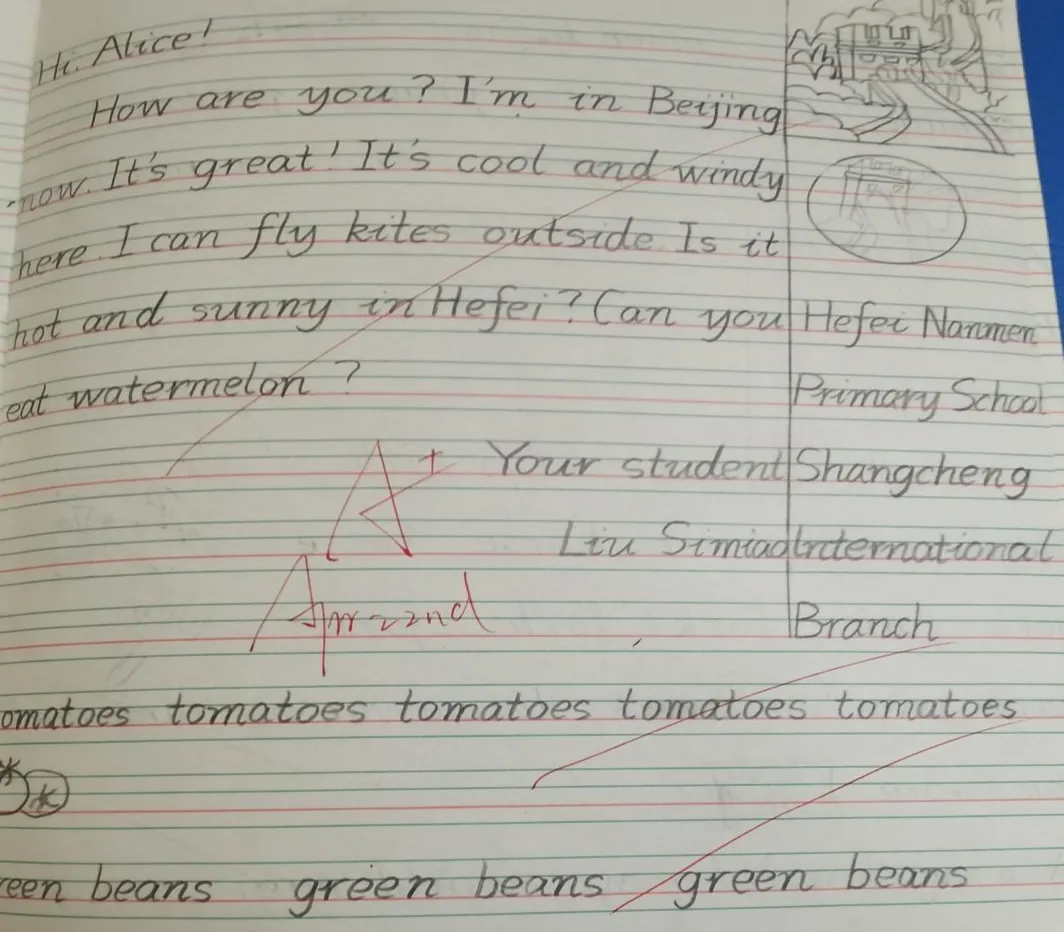 Hi. Alice!
How are you? I'm in Beijing
now. It's great! It's cool and windy
here. I can fly kites outside Is it
hot and sunny in Hefei? Can you
eat watermelon?
Your student
Liu Simiao
Hefei Nanmen
Primary School
Shangcheng
International
Branch
A+
Apr 22nd
omatoes tomatoes tomatoes tomatoes tomatoes
reen beans green beans green beans